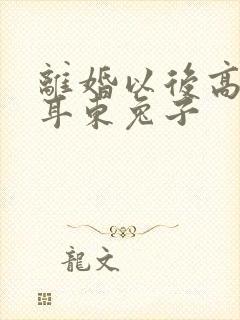 離婚以後高
耳朵兔子
龍文